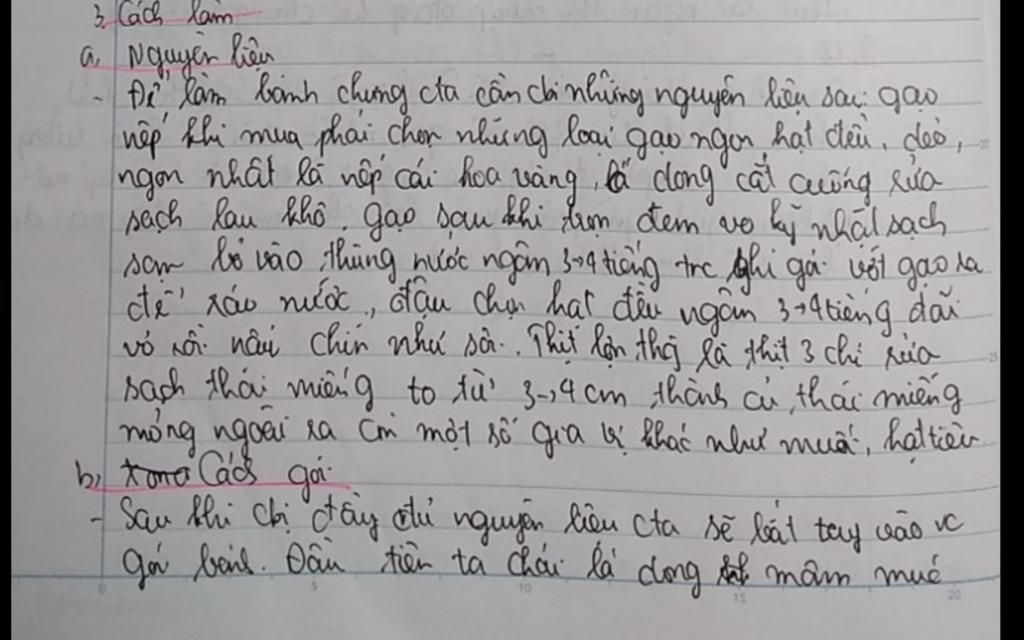 3. Cách làm
a, Nguyên liệu
- Để làm bánh chưng cta cần cbi những nguyên liệu sau: gạo
nếp khi mua phải chọn những loại gạo ngon hạt đều, dẻo,
ngon nhất là nếp cái hoa vàng, lá dong cắt cuống rửa
sạch lau khô. gạo sau khi trọn đem vo kỹ nhặt sạch
sạn bỏ vào thùng nước ngâm 3→4 tiếng trc khi gói vớt gạo ra
để ráo nước, đậu chọn hạt đều ngâm 3→4 tiếng đãi
vỏ rồi nấu chín như sôi. Thịt lợn thg là thịt 3 chỉ rửa
sạch thái miếng to từ 3→4 cm, thái miếng
mỏng ngoài ra còn một số gia vị khác như muối, hạt tiêu
b, Cách gói
- Sau khi cbị đầy đủ nguyên liệu cta sẽ bắt tay vào vc
gói bánh. Đầu tiên ta lá dong mâm